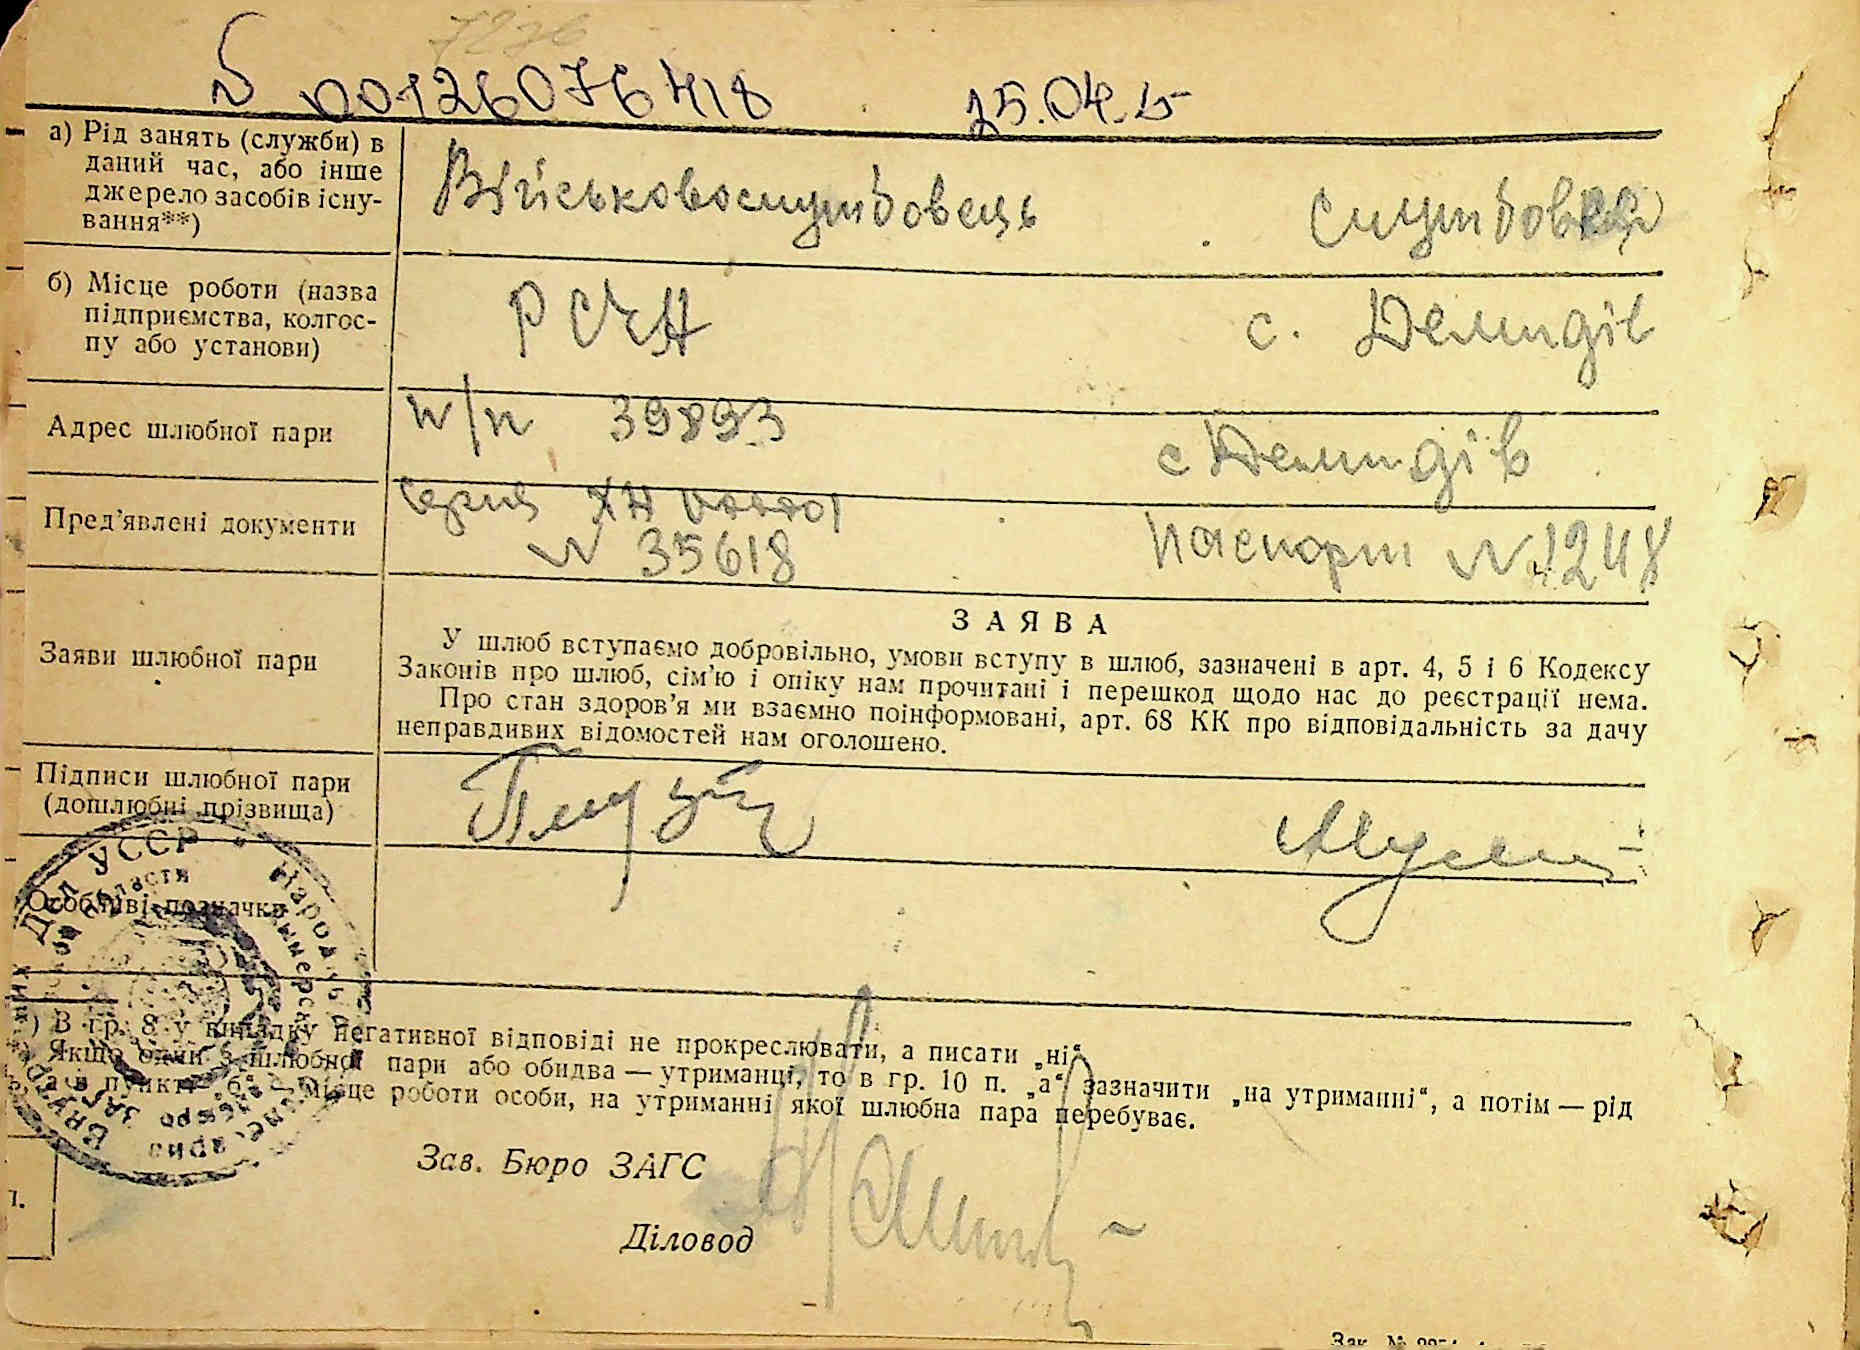 7276
№ 00126076418 25.04.15
а) Рід занять (служби) в
даний час, або інше
джерело засобів існу-
вання**)
Військовослужбовець
службовец
б) Місце роботи (назва
підприємства, колгос-
пу або установи)
РСЧА
с. Демидів
Адрес шлюбної пари
п/п 39893
с Демидів
Пред'явлені документи
Серия ХН
№ 35618
паспорт № 1248
Заяви шлюбної пари
ЗАЯВА
У шлюб вступаємо добровільно, умови вступу в шлюб, зазначені в арт. 4, 5 і 6 Кодексу
Законів про шлюб, сім'ю і опіку нам прочитані і перешкод щодо нас до реєстрації нема.
Про стан здоров'я ми взаємно поінформовані, арт. 68 КК про відповідальність за дачу
неправдивих відомостей нам оголошено.
Підписи шлюбної пари
(дошлюбні прізвища)
Особливі позначки
) В гр. 8 у випадку негативної відповіді не прокреслювати, а писати „ні“
Якщо один з шлюбної пари або обидва — утриманці, то в гр. 10 п. „а“ зазначити „на утриманні“, а потім — рід
а в пункті „б“ місце роботи особи, на утриманні якої шлюбна пара перебуває.
Зав. Бюро ЗАГС
Діловод
Зак. №